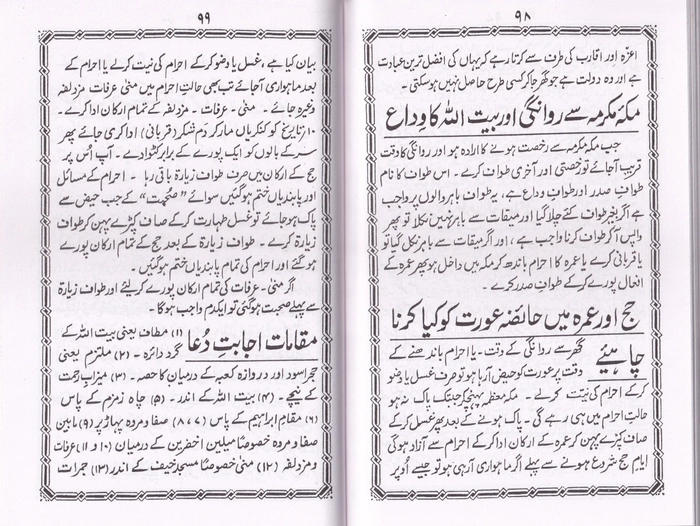 ۹۸
اعزہ اور اقارب کی طرف سے کرتا رہے کہ یہاں کی افضل ترین عبادت
ہے اور وہ دولت ہے جو گھر جا کر کسی طرح حاصل نہیں ہو سکتی۔
مکہ مکرمہ سے روانگی اور بیت اللہ کا وداع
جب مکہ مکرمہ سے رخصت ہونے کا ارادہ ہو اور روانگی کا وقت
قریب آ جائے تو رخصتی اور آخری طواف کرے۔ اس طواف کا نام
طواف صدر اور طواف وداع ہے، یہ طواف باہر والوں پر واجب
ہے اگر بغیر طواف کئے چلا گیا اور میقات سے باہر نہیں نکلا تو پھر
واپس آ کر طواف کرنا واجب ہے، اور اگر میقات سے باہر نکل گیا تو
یا قربانی کرے یا عمرہ کا احرام باندھ کر مکہ میں داخل ہو پھر عمرہ کے
افعال پورے کر کے طواف صدر کرے۔
حج اور عمرہ میں حائضہ عورت کو کیا کرنا
چاہیئے
گھر سے روانگی کے وقت۔ یا احرام باندھنے کے
وقت پر عورت کو حیض آ رہا ہو تو صرف غسل یا وضو
کر کے احرام کی نیت کرلے۔ مکہ معظمہ پہنچ کر جب تک پاک نہ ہو
حالت احرام میں ہی رہے گی۔ پاک ہونے کے بعد پھر غسل کر کے
صاف کپڑے پہن کر عمرہ کے ارکان ادا کر کے احرام سے آزاد ہو گی
ایام حج شروع ہونے سے پہلے اگر ماہواری آ رہی ہو تو جیسے اُوپر
۹۹
بیان کیا ہے، غسل یا وضو کر کے احرام کی نیت کرلے یا احرام کے
بعد ماہواری آ جائے تب بھی حالت احرام میں منیٰ عرفات مزدلفہ
وغیرہ جائے۔ منیٰ۔ عرفات۔ مزدلفہ کے تمام ارکان ادا کرے۔
۱۰ تاریخ کو کنکریاں مار کر دَم شکر (قربانی) ادا کری جائے پھر
سر کے بالوں کو ایک پورے کے برابر کٹوا دے۔ اب اُس پر
حج کے ارکان میں صرف طواف زیارۃ باقی رہا۔ احرام کے مسائل
اور پابندیاں ختم ہو گئیں سوائے ”صُحبت“ کے جب حیض سے
پاک ہو جائے تو غسل طہارت کر کے صاف کپڑے پہن کر طواف
زیارۃ کرے۔ طواف زیارۃ کے بعد حج کے تمام ارکان پورے
ہو گئے اور احرام کی تمام پابندیاں ختم ہو گئیں۔
اگر منیٰ۔ عرفات کی تمام ارکان پورے کر لیئے اور طواف زیارۃ
سے پہلے صحبت ہو گئی تو ایک دم واجب ہو گا۔
مقامات اجابتِ دُعا
(۱) مطاف یعنی بیت اللہ کے
گرد دائرہ۔ (۲) ملتزم یعنی
حجر اسود اور دروازہ کعبہ کے درمیان کا حصہ۔ (۳) میزاب رحمت
کے نیچے۔ (۴) بیت اللہ کے اندر۔ (۵) چاہ زمزم کے پاس
(۶) مقام ابراہیم کے پاس (۷ ۸) صفا و مروہ پہاڑ پر (۹) مابین
صفا و مروہ خصوصاً میلین اخضرین کے درمیان (۱۰ و ۱۱) عرفات
و مزدلفہ (۱۲) منیٰ خصوصاً مسجد خیف کے اندر (۱۳) جمرات